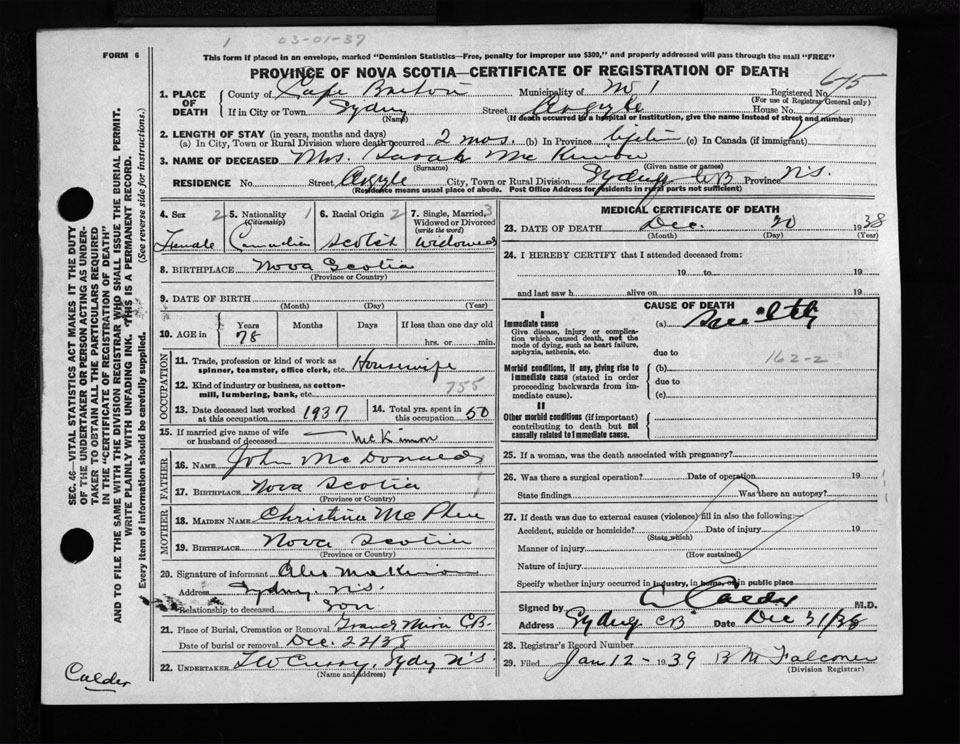 1 03-01-37
FORM 6
This form if placed in an envelope, marked "Dominion Statistics—Free, penalty for improper use $300," and properly addressed will pass through the mail "FREE"
PROVINCE OF NOVA SCOTIA—CERTIFICATE OF REGISTRATION OF DEATH
1. PLACE OF DEATH
County of Cape Breton Municipality of Registered No. 675
(For use of Registrar General only)
If in City or Town Sydney Street Argyle House No.
(Name) (If death occurred in a hospital or institution, give the name instead of street and number)
2. LENGTH OF STAY (in years, months and days)
(a) In City, Town or Rural Division where death occurred 2 mos. (b) In Province (c) In Canada (if immigrant)
3. NAME OF DECEASED Mrs. Sarah McKinnon
(Surname) (Given name or names)
RESIDENCE No. Street Argyle City, Town or Rural Division Sydney CB Province N.S.
(Residence means usual place of abode. Post Office Address in rural parts not sufficient)
4. Sex 2 Female
5. Nationality 1 (Citizenship) Canadian
6. Racial Origin 2 Scotch
7. Single, Married, 3 Widowed or Divorced (write the word) Widowed
8. BIRTHPLACE Nova Scotia
(Province or Country)
9. DATE OF BIRTH
(Month) (Day) (Year)
10. AGE in Years Months Days If less than one day old
78 hrs. or min.
OCCUPATION
11. Trade, profession or kind of work as spinner, teamster, office clerk, etc. Housewife
12. Kind of industry or business, as cotton-mill, lumbering, bank, etc. 755
13. Date deceased last worked at this occupation 1937
14. Total yrs. spent in this occupation 50
15. If married give name of wife or husband of deceased — McKinnon
FATHER
16. NAME John McDonald
17. BIRTHPLACE Nova Scotia
(Province or Country)
MOTHER
18. MAIDEN NAME Christina McPhee
19. BIRTHPLACE Nova Scotia
(Province or Country)
20. Signature of informant Alex McKinnon
Address Sydney, N.S.
Relationship to deceased son
21. Place of Burial, Cremation or Removal Grand Mira C.B.
Date of burial or removal Dec. 22/38
22. UNDERTAKER Sydney N.S.
(Name and address)
MEDICAL CERTIFICATE OF DEATH
23. DATE OF DEATH Dec. 20 1938
(Month) (Day) (Year)
24. I HEREBY CERTIFY that I attended deceased from:
19 to 19
and last saw h alive on 19
CAUSE OF DEATH
I
Immediate cause (a) Senility
Give disease, injury or complication which caused death, not the mode of dying, such as heart failure, asphyxia, asthenia, etc.
due to
162-2
Morbid conditions, if any, giving rise to immediate cause (stated in order proceeding backwards from immediate cause).
(b)
due to
(c)
II
Other morbid conditions (if important) contributing to death but not causally related to immediate cause.
25. If a woman, was the death associated with pregnancy?
26. Was there a surgical operation? Date of operation 19
State findings Was there an autopsy?
27. If death was due to external causes (violence) fill in also the following:—
Accident, suicide or homicide? Date of injury 19
(State which)
Manner of injury
(How sustained)
Nature of injury
Specify whether injury occurred in industry, in home, or in public place
Signed by Calder M.D.
Address Sydney CB Date Dec 31/38
28. Registrar's Record Number
29. Filed Jan 12 - 1939 B M Falconer
(Division Registrar)
Calder
SEC. 46—VITAL STATISTICS ACT MAKES IT THE DUTY
OF THE UNDERTAKER OR PERSON ACTING AS UNDER-
TAKER TO OBTAIN ALL THE PARTICULARS REQUIRED
IN THE "CERTIFICATE OF REGISTRATION OF DEATH"
AND TO FILE THE SAME WITH THE DIVISION REGISTRAR WHO SHALL ISSUE THE BURIAL PERMIT.
WRITE PLAINLY WITH UNFADING INK. THIS IS A PERMANENT RECORD.
Every item of information should be carefully supplied. (See reverse side for instructions.)